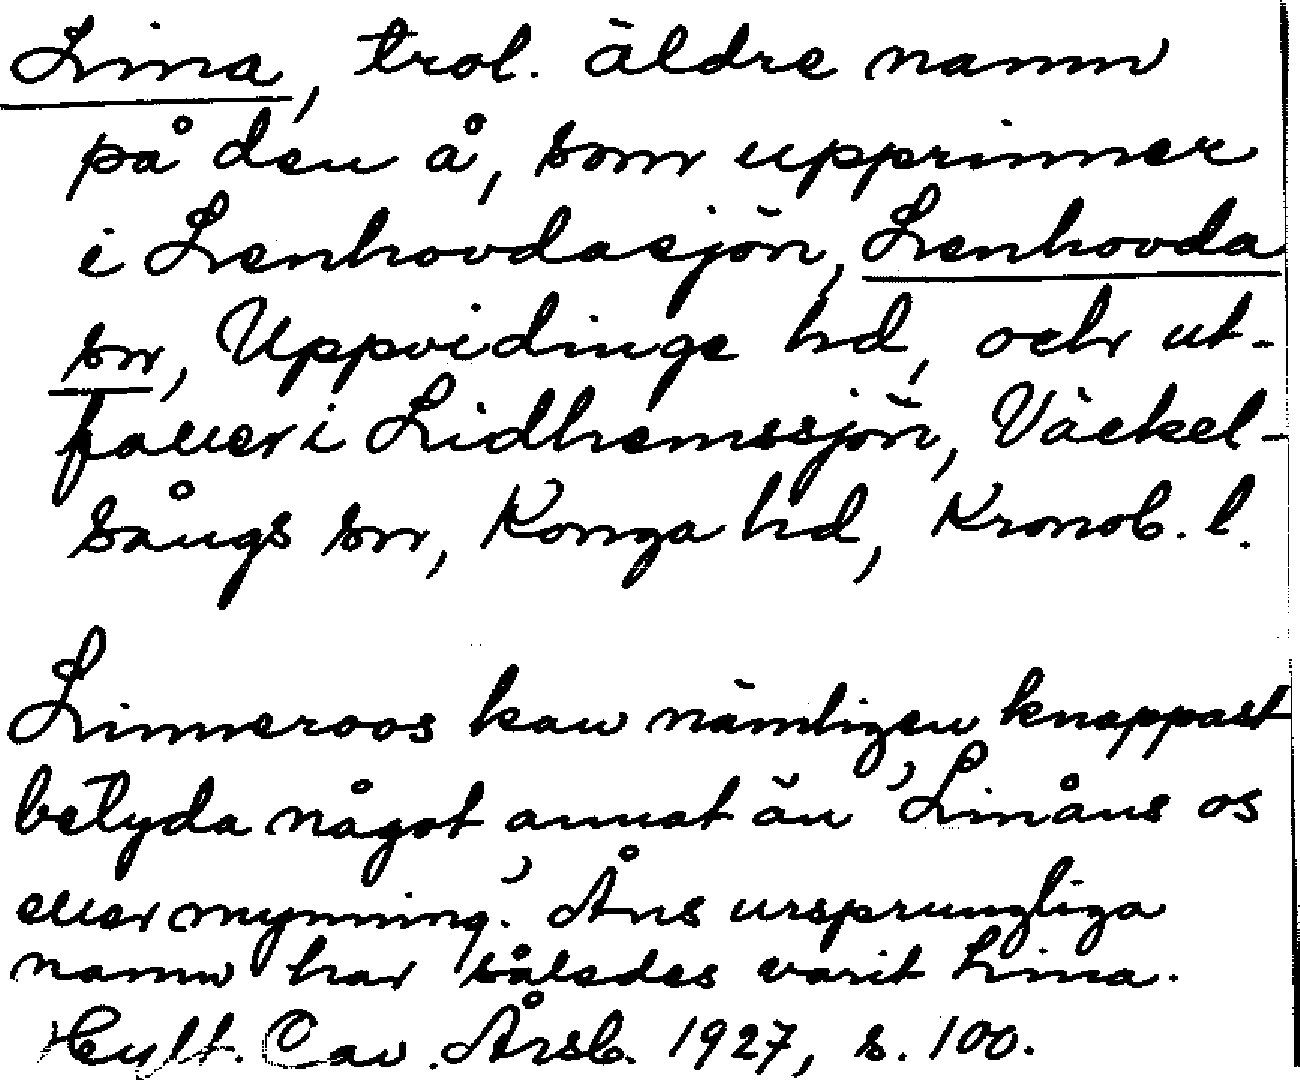 Lina, trol. äldre namn
på den å, som upprinner
i Lenhovdasjön, Lenhovda
sn, Uppvidinge hd, och ut-
faller i Lidhemssjön, Väckel-
sångs sn, Konga hd, Kronob. l.
Linneroos kan nämligen knappast
betyda något annat än 'Linåns os
eller mynning.' Åns ursprungliga
namn har således varit Lina.
Hylt. Cav. Årsb. 1927, s. 100.